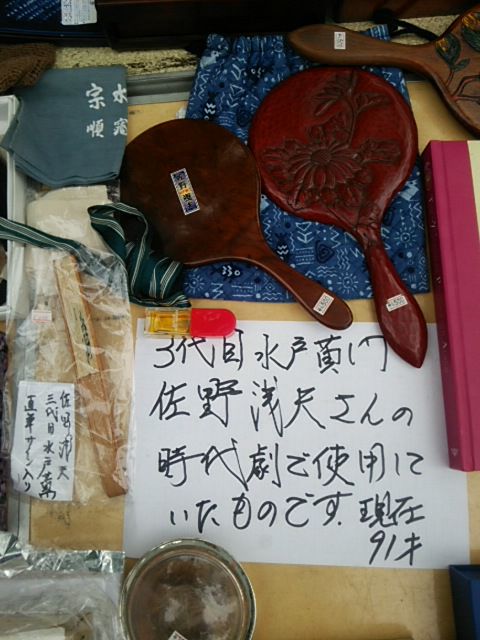 宗順
3代目水戸黄門
佐野浅夫さんの
時代劇で使用して
いたものです。現在
91才
佐野浅夫
三代目水戸黄
直筆サイン入り